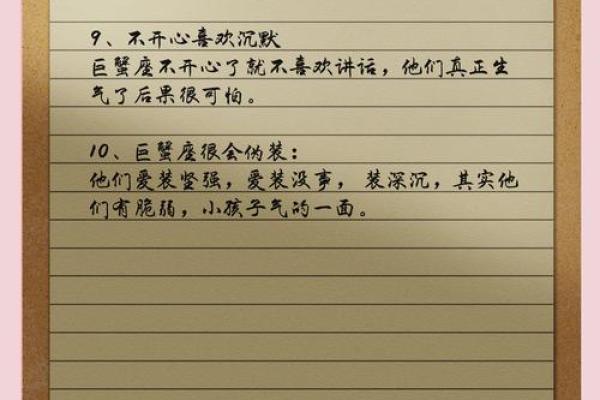 9、不开心喜欢沉默
巨蟹座不开心了就不喜欢讲话，他们真正生
气了后果很可怕。
10、巨蟹座很会伪装：
他们爱装坚强，爱装没事， 装深沉，其实他
们有脆弱，小孩子气的一面。